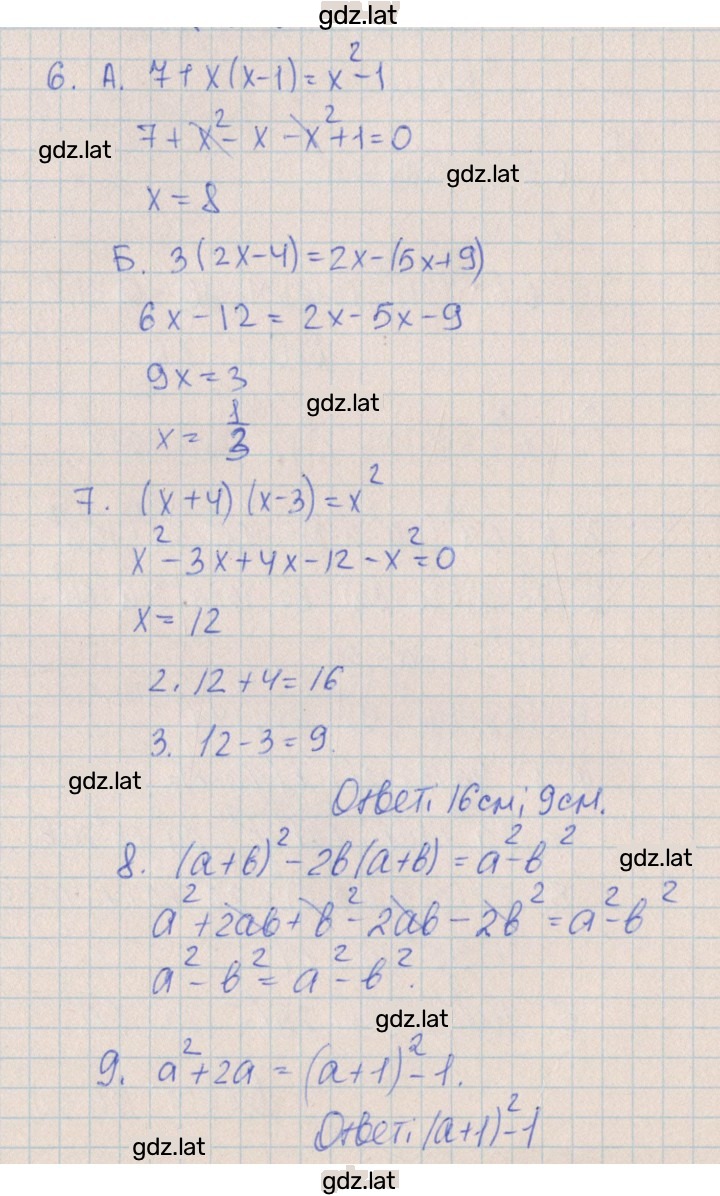 gdz.lat
6. А. 7+x(x-1)=x²-1
7+x²-x-x²+1=0
gdz.lat
gdz.lat
x=8
Б. 3(2x-4)=2x-(5x+9)
6x-12=2x-5x-9
9x=3
gdz.lat
x=1/3
7. (x+4)(x-3)=x²
x²-3x+4x-12-x²=0
x=12
2. 12+4=16
3. 12-3=9.
gdz.lat
Ответ: 16см; 9см.
8. (a+b)²-2b(a+b)=a²-b²
gdz.lat
a²+2ab+b²-2ab-2b²=a²-b²
a²-b²=a²-b².
gdz.lat
9. a²+2a=(a+1)²-1.
Ответ: (a+1)²-1
gdz.lat
gdz.lat